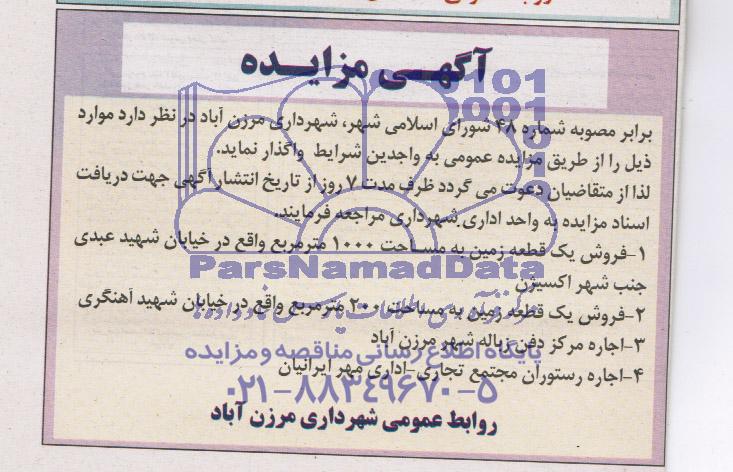 آگهـی مزایـده
برابر مصوبه شماره ۴۸ شورای اسلامی شهر، شهرداری مرزن آباد در نظر دارد موارد
ذیل را از طریق مزایده عمومی به واجدین شرایط واگذار نماید.
لذا از متقاضیان دعوت می گردد ظرف مدت ۷ روز از تاریخ انتشار آگهی جهت دریافت
اسناد مزایده به واحد اداری شهرداری مراجعه فرمایند.
۱-فروش یک قطعه زمین به مساحت ۱۰۰۰ مترمربع واقع در خیابان شهید عبدی
جنب شهر اکسیژن
۲-فروش یک قطعه زمین به مساحت ۲۰۰ مترمربع واقع در خیابان شهید آهنگری
۳-اجاره مرکز دفن زباله شهر مرزن آباد
۴-اجاره رستوران مجتمع تجاری-اداری مهر ایرانیان
روابط عمومی شهرداری مرزن آباد
ParsNamadData
پایگاه اطلاع رسانی مناقصه و مزایده
۰۲۱-۸۸۳۴۹۶۷۰-۵